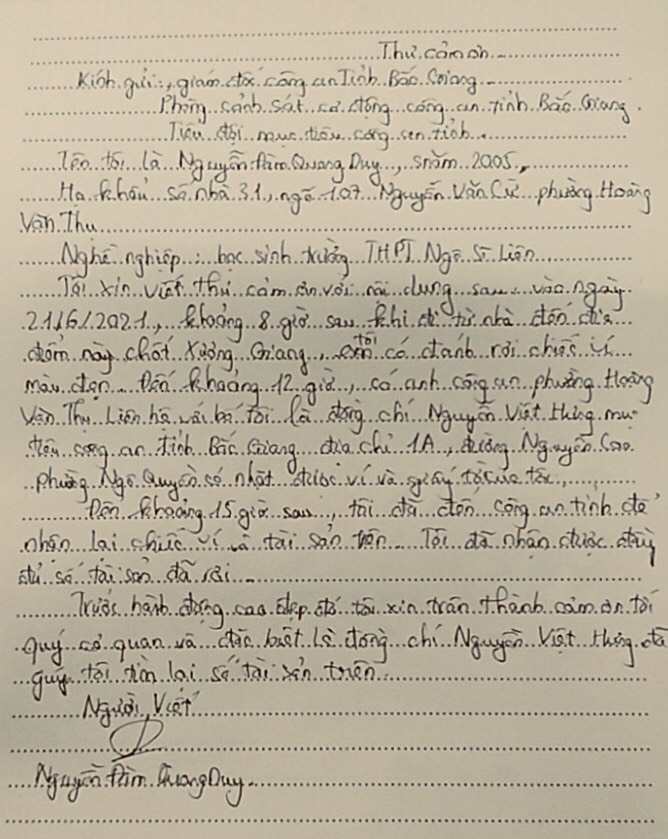 Thư cảm ơn
Kính gửi: giám đốc công an Tỉnh Bắc Giang
Phòng cảnh sát cơ động công an tỉnh Bắc Giang.
Tiểu đội mục tiêu công an tỉnh
Tên tôi là Nguyễn Đàm Quang Duy, snăm 2005,
Hộ khẩu số nhà 31, ngõ 107 Nguyễn Văn Cừ phường Hoàng
Văn Thụ
Nghề nghiệp: học sinh trường THPT Ngô Sĩ Liên
Tôi xin viết thư cảm ơn với nội dung sau: vào ngày
21/6/2021, khoảng 8 giờ sau khi đi từ nhà đến địa
điểm này chốt Xương Giang, tôi có đánh rơi chiếc ví
màu đen. Đến khoảng 12 giờ, có anh công an phường Hoàng
Văn Thụ Liên hệ với bố tôi là đồng chí Nguyễn Việt Hưng mục
tiêu công an tỉnh Bắc Giang địa chỉ 1A, đường Nguyễn Cao
phường Ngô Quyền có nhặt được ví và giấy tờ của tôi,
Đến khoảng 15 giờ sau, tôi đã đến công an tỉnh để
nhận lại chiếc ví và tài sản trên. Tôi đã nhận được đầy
đủ số tài sản đã rơi.
Trước hành động cao đẹp đó tôi xin trân thành cảm ơn tới
quý cơ quan và đặc biệt là đồng chí Nguyễn Việt Hưng đã
giúp tôi tìm lại số tài sản trên.
Người Viết
Nguyễn Đàm Quang Duy.